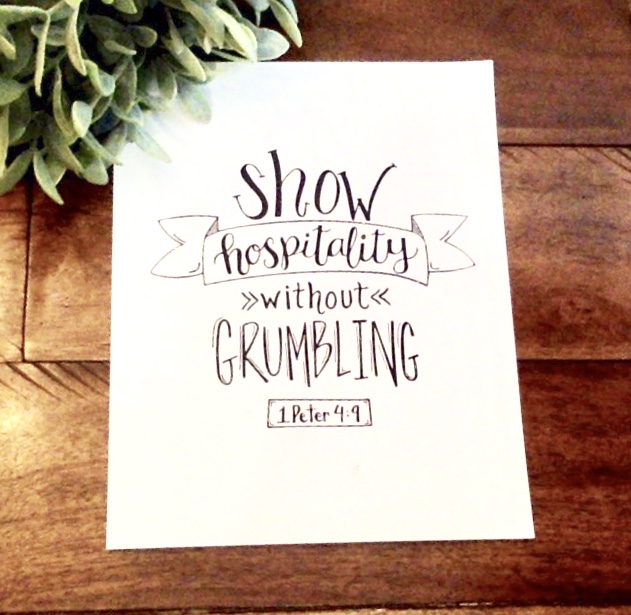 show
hospitality
»without«
GRUMBLING
1 Peter 4:9